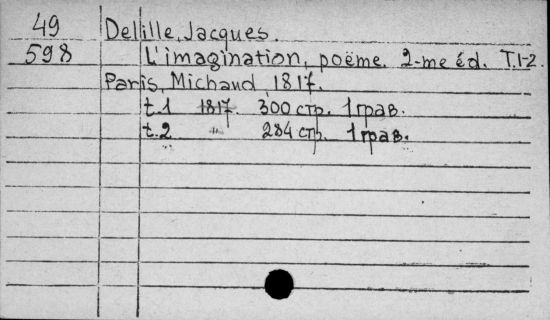 49 Delille, Jacques.
598 L'imagination, poëme. 2-me éd. T.1-2.
Paris, Michaud, 1817.
t.1 1817. 300 стр. 1 грав.
t.2 " 284 стр. 1 грав.